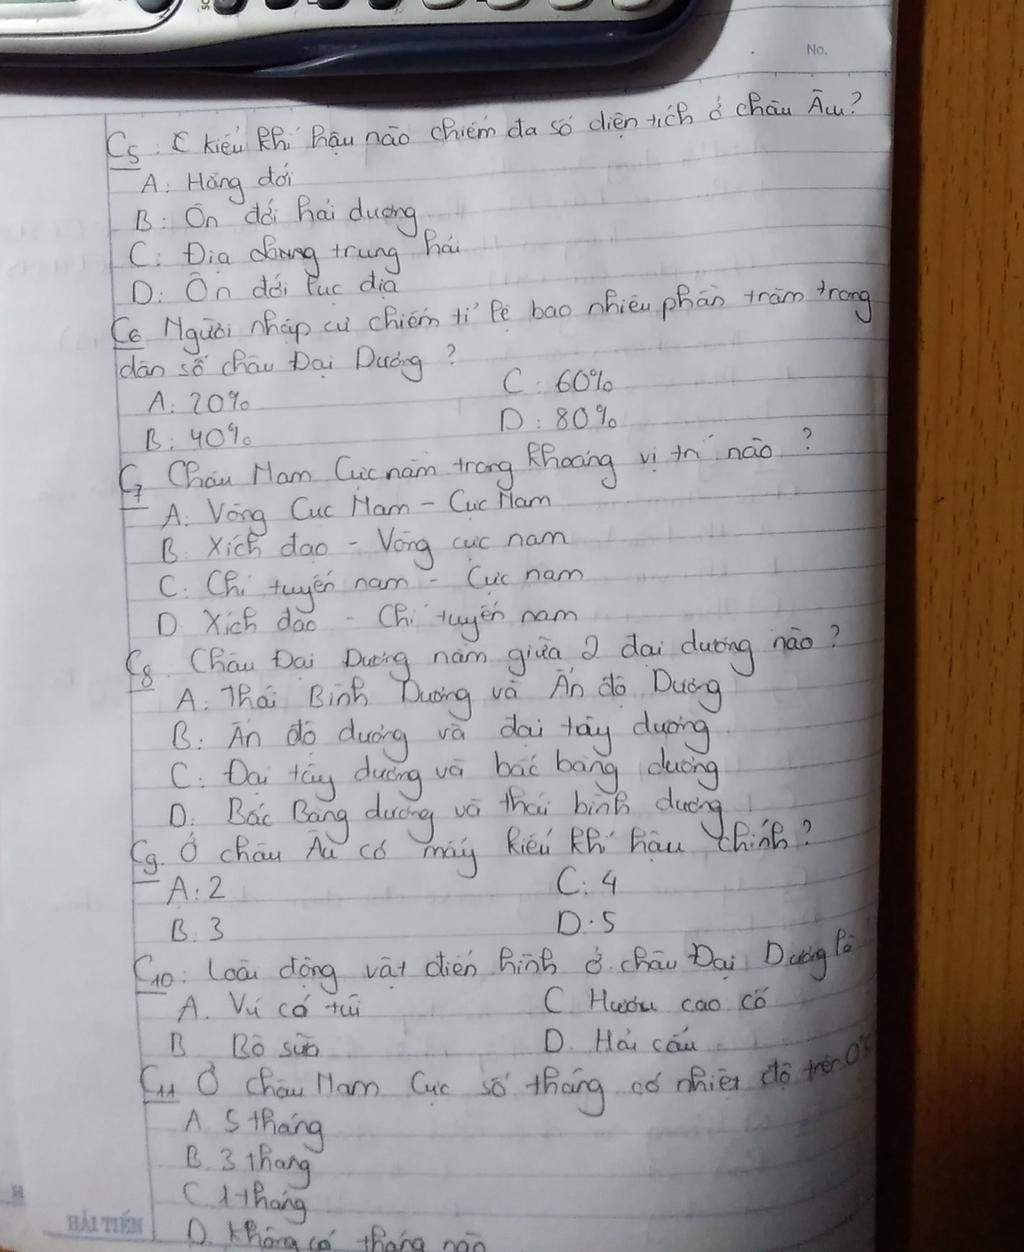 No.
C5: Kiểu khí hậu nào chiếm đa số diện tích ở châu Âu?
A: Hàng đới
B: Ôn đới hải dương
C: Địa chung trung hải
D: Ôn đới lục địa
C6 Người nhập cư chiếm tỉ lệ bao nhiêu phần trăm trong
dân số châu Đại Dương?
A: 20%
C: 60%
B: 40%
D: 80%
C7 Châu Nam Cực nằm trong khoảng vị trí nào?
A: Vòng Cực Nam - Cực Nam
B: Xích đạo - Vòng cực nam
C: Chí tuyến nam - Cực nam
D Xích đạo - Chí tuyến nam
C8. Châu Đại Dương nằm giữa 2 đại dương nào?
A: Thái Bình Dương và Ấn độ Dương
B: Ấn độ dương và đại tây dương
C: Đại tây dương và bắc băng dương
D: Bắc Băng dương và thái bình dương
C9. Ở châu Âu có mấy kiểu khí hậu chính?
A: 2
C: 4
B. 3
D. 5
C10: Loài động vật điển hình ở châu Đại Dương là
A. Vú có túi
C Hươu cao cổ
B Bò sữa
D. Hải cẩu
C11 Ở châu Nam Cực số tháng có nhiệt độ trên 0°C
A. 5 tháng
B. 3 tháng
C 1 tháng
D. không có tháng nào
HẢI TIẾN